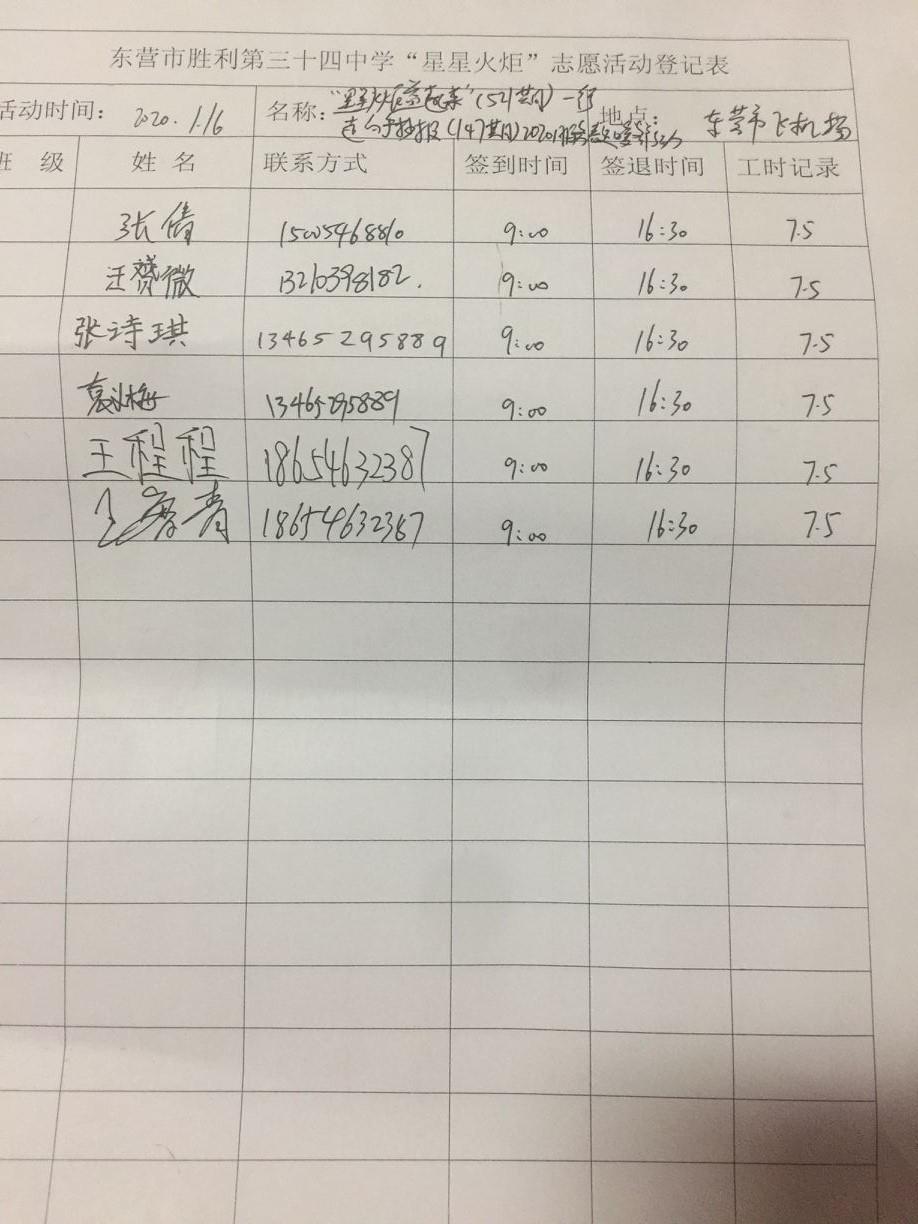 东营市胜利第三十四中学“星星火炬”志愿活动登记表
活动时间: 2020.1.16 名称: (521期) 地点: 东营市飞机场
(147期) 2020
班 级 姓 名 联系方式 签到时间 签退时间 工时记录
张倩 9:00 16:30 7.5
汪赟微 13210398182. 9:00 16:30 7.5
张诗琪 13465295889 9:00 16:30 7.5
袁 梅 13465295889 9:00 16:30 7.5
王程程 18654632387 9:00 16:30 7.5
青 18654632387 9:00 16:30 7.5